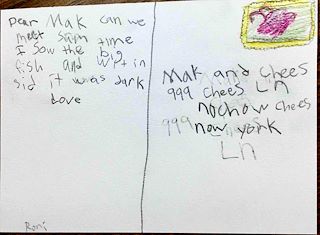 Dear Mak can we
meet sum time
I Sow the big
fish and wet in
sid it was dark
Love
Roni
Mak and Chees
999 Chees Ln
nochow chees
now york
Ln